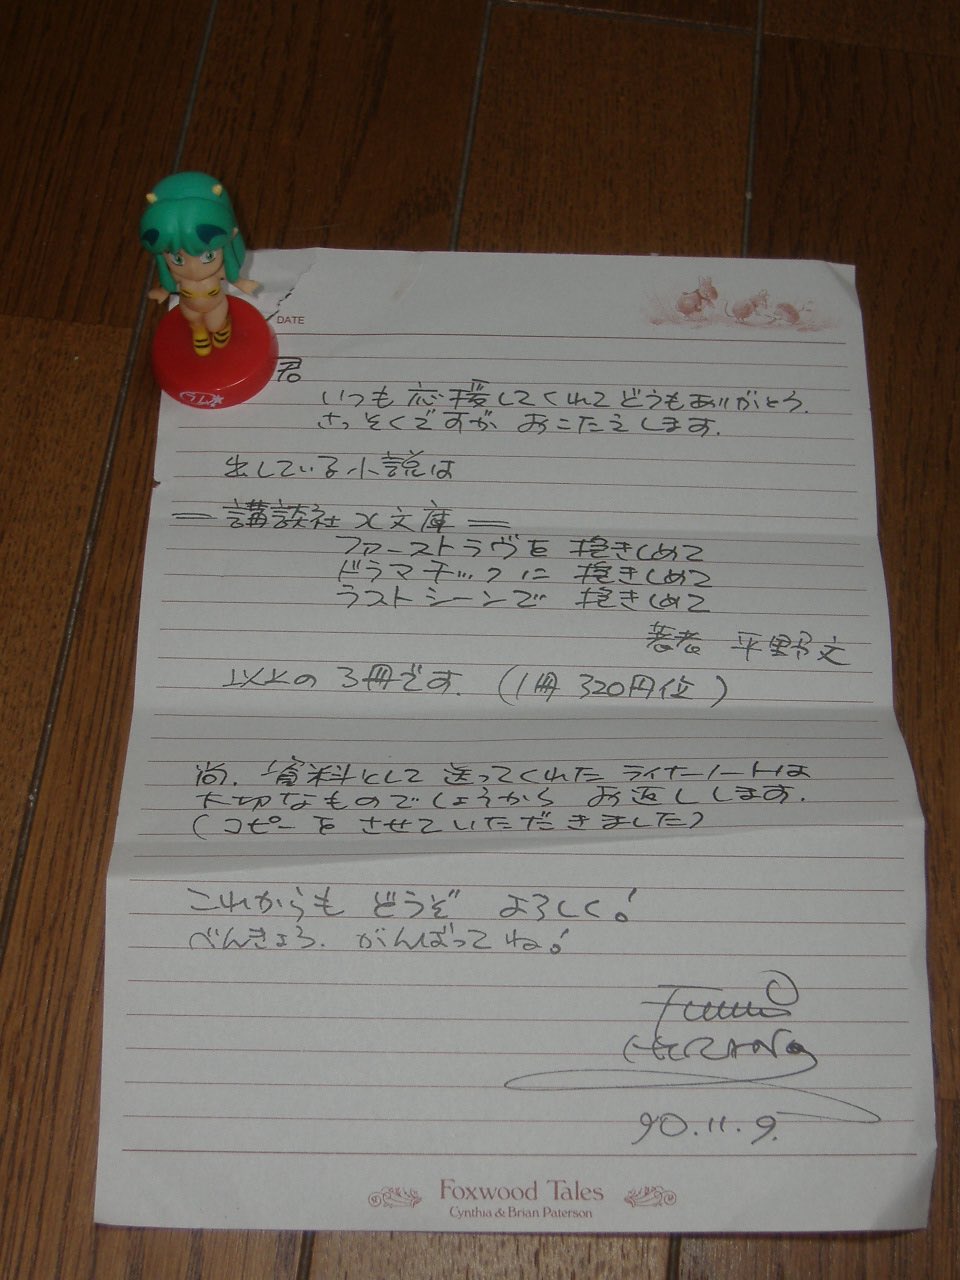 DATE
君
いつも応援してくれてどうもありがとう.
さっそくですが おこたえします.
出している小説は
=講談社X文庫=
ファーストラヴを 抱きしめて
ドラマチックに 抱きしめて
ラストシーンで 抱きしめて
著者 平野文
以上の3冊です. (1冊 320円位)
尚. 資料として 送ってくれた ライナーノートは
大切なものでしょうから お返しします.
(コピーを させていただきました)
これからも どうぞ よろしく!
べんきょう. がんばってね!
Fumi
HIRANO
90.11.9.
Foxwood Tales
Cynthia & Brian Paterson